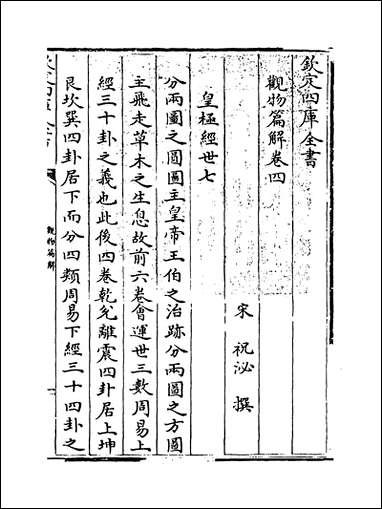 欽定四庫全書
觀物篇解卷四
宋 祝泌 撰
皇極經世七
分兩圖之圓圖主皇帝王伯之治跡分兩圖之方圖
主飛走草木之生息故前六卷會運世三數周易上
經三十卦之義也此後四卷乾兌離震四卦居上坤
艮坎巽四卦居下而分四類周易下經三十四卦之
觀物篇解